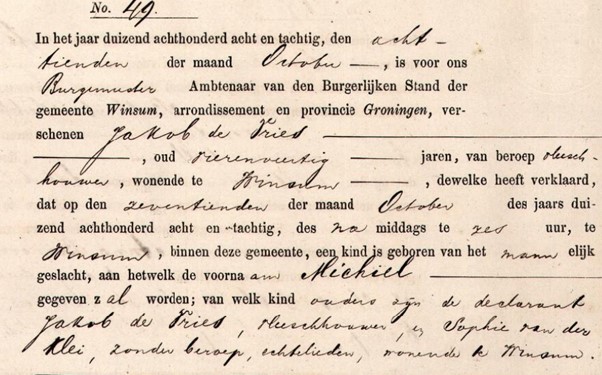 No. 49.
In het jaar duizend achthonderd acht en tachtig, den acht-
tienden der maand October —, is voor ons
Burgemeester Ambtenaar van den Burgerlijken Stand der
gemeente Winsum, arrondissement en provincie Groningen, ver-
schenen Jakob de Vries —
—, oud vierenveertig — jaren, van beroep vleesch-
houwer, wonende te Winsum —, dewelke heeft verklaard,
dat op den zeventienden der maand October des jaars dui-
zend achthonderd acht en tachtig, des na middags te zes uur, te
Winsum, binnen deze gemeente, een kind is geboren van het mann elijk
geslacht, aan hetwelk de voorna am Michiel —
gegeven z al worden; van welk kind ouders zijn de declarant
Jakob de Vries, vleeschhouwer, en Sophie van der
Klei, zonder beroep, echtelieden, wonende te Winsum.